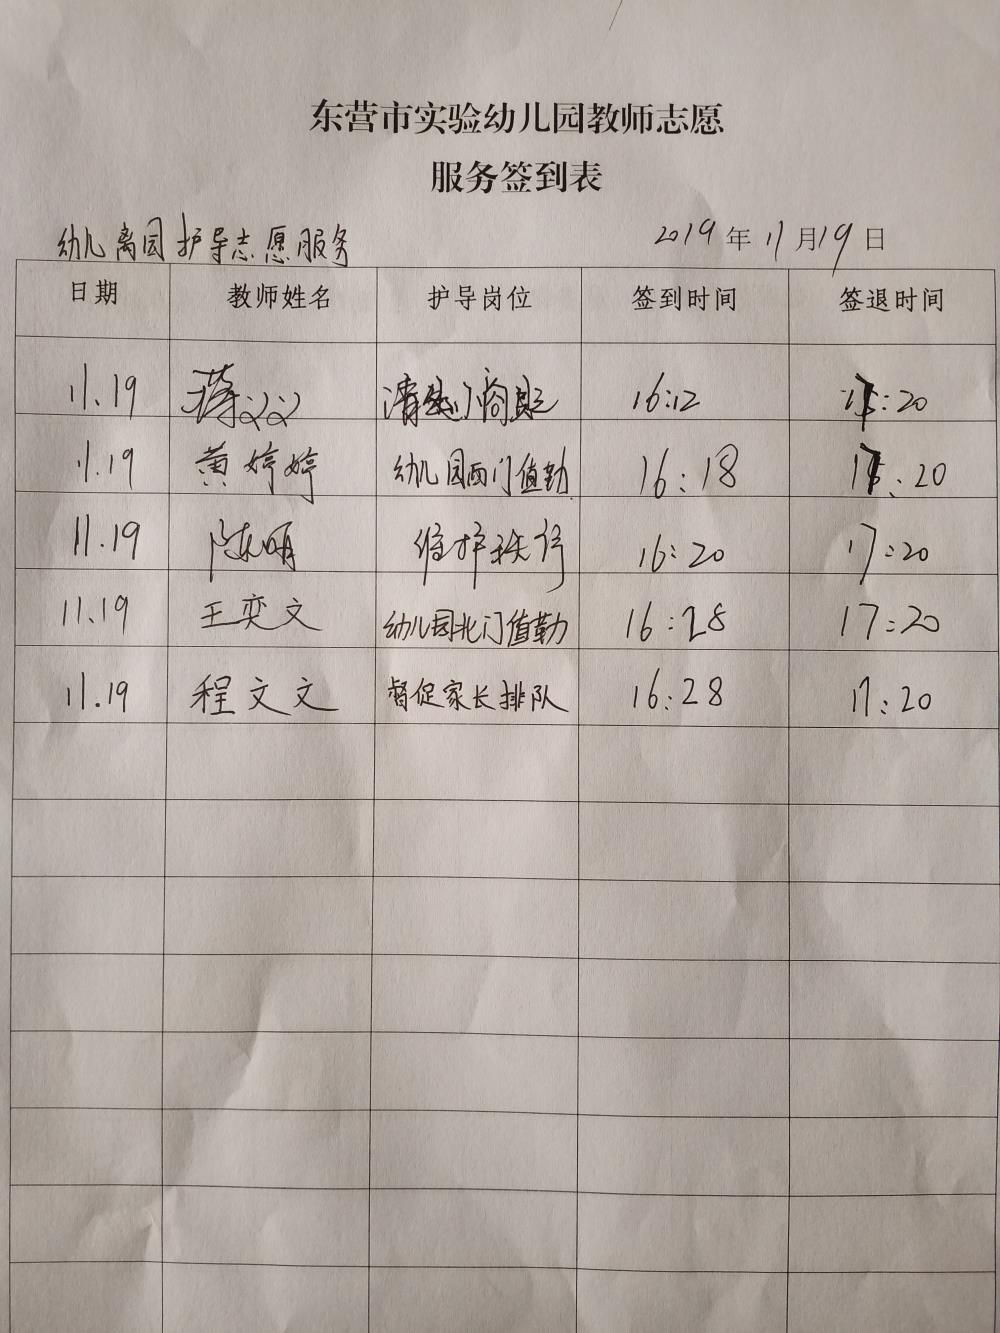 东营市实验幼儿园教师志愿
服务签到表
幼儿离园护导志愿服务 2019年11月19日
日期 教师姓名 护导岗位 签到时间 签退时间
11.19 16:12 17:20
11.19 黄婷婷 幼儿园西门值勤 16:18 17:20
11.19 陈明 维护秩序 16:20 17:20
11.19 王奕文 幼儿园北门值勤 16:28 17:20
11.19 程文文 督促家长排队 16:28 17:20